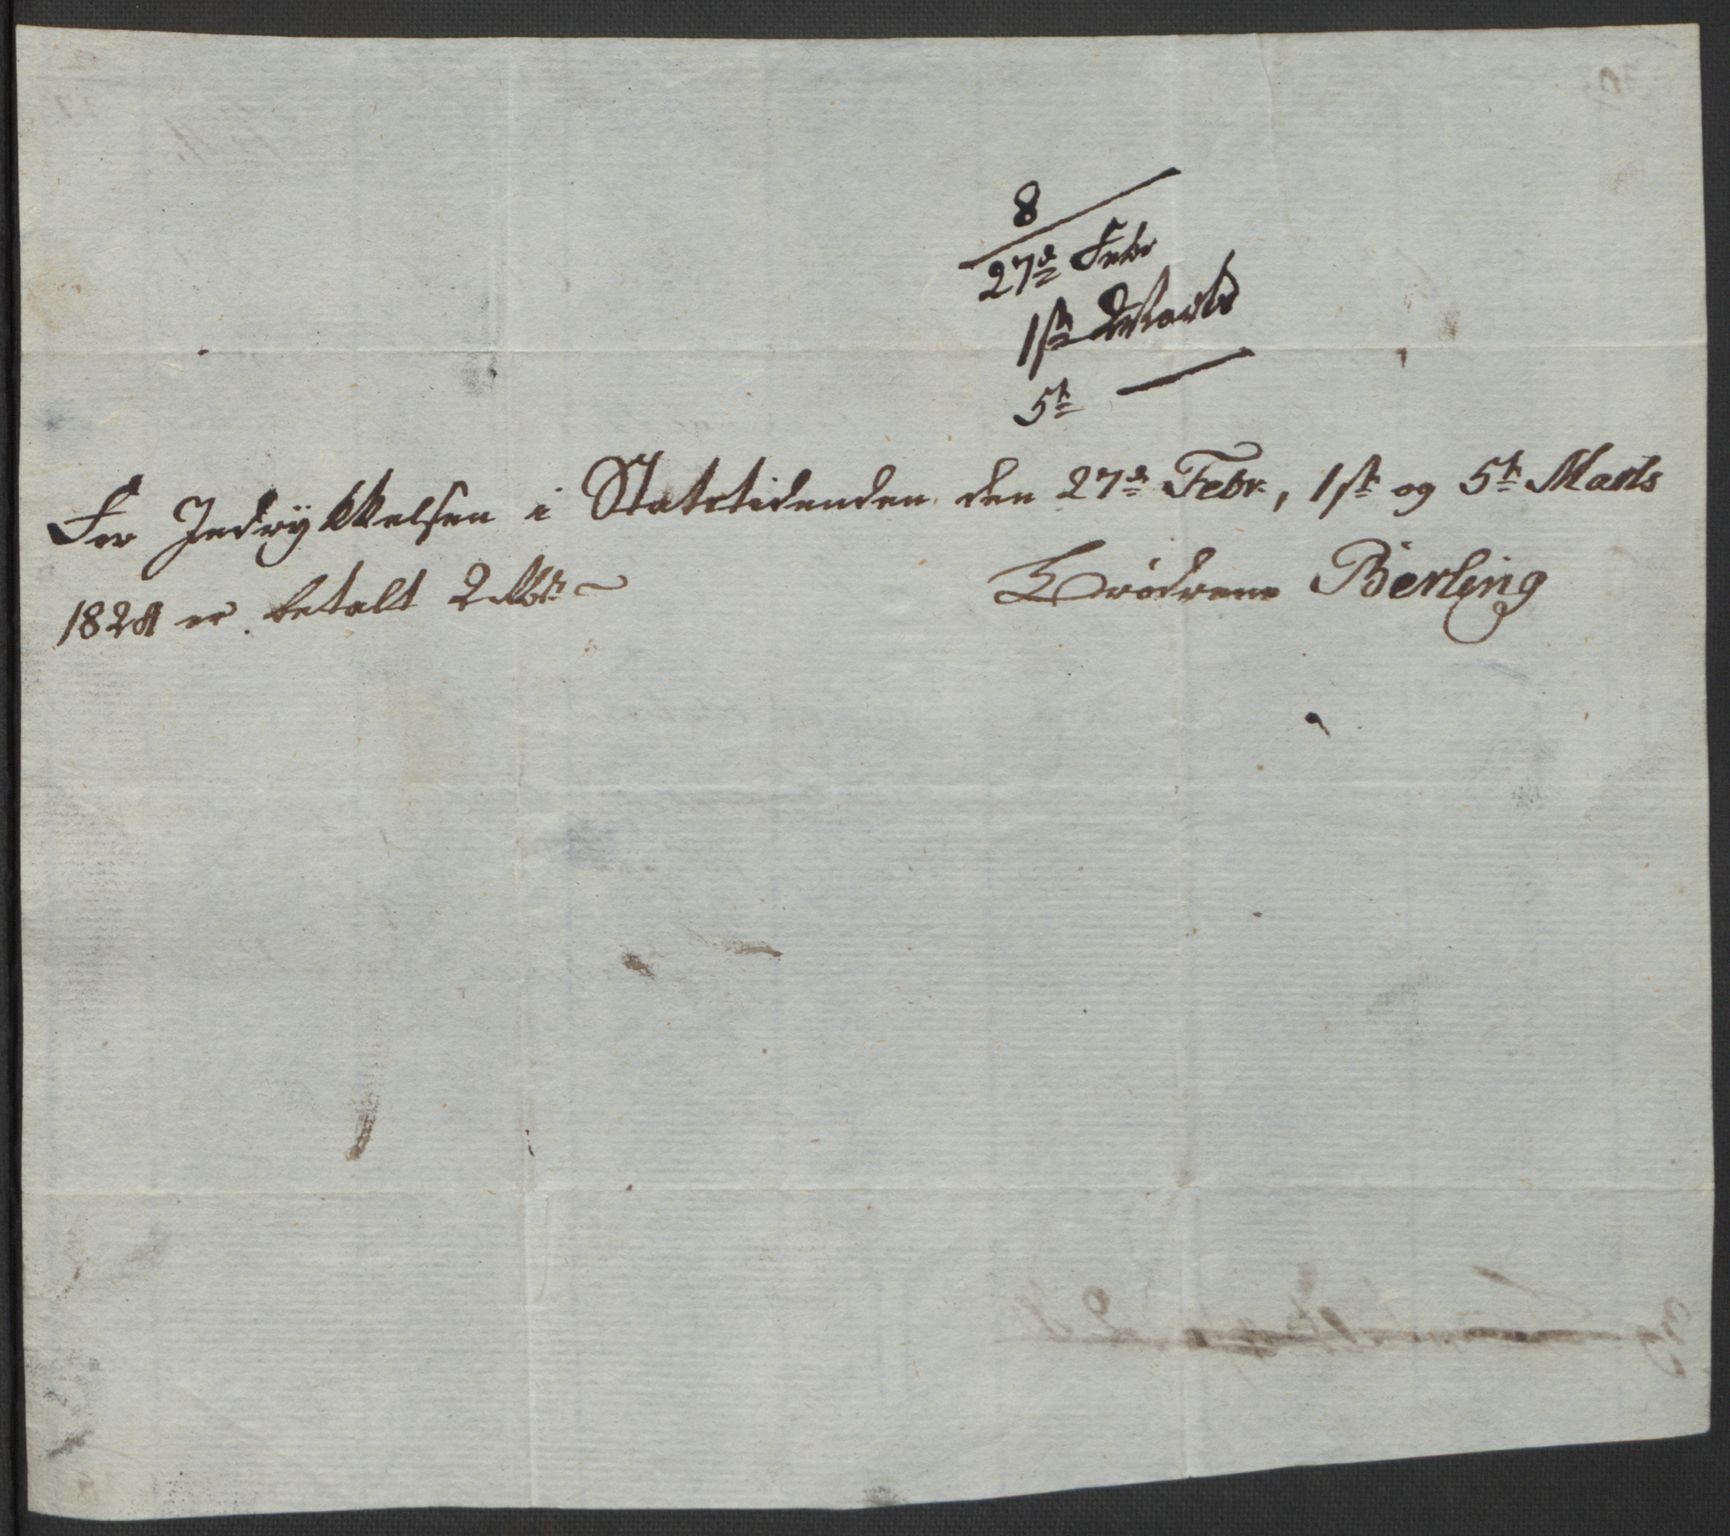 8
27de Febr
1ste Marts
5te —
For Indrykkelsen i Statstidenden den 27de Febr., 1ste og 5te Marts
1824 er betalt 2 Rbd. Brødrene Berling